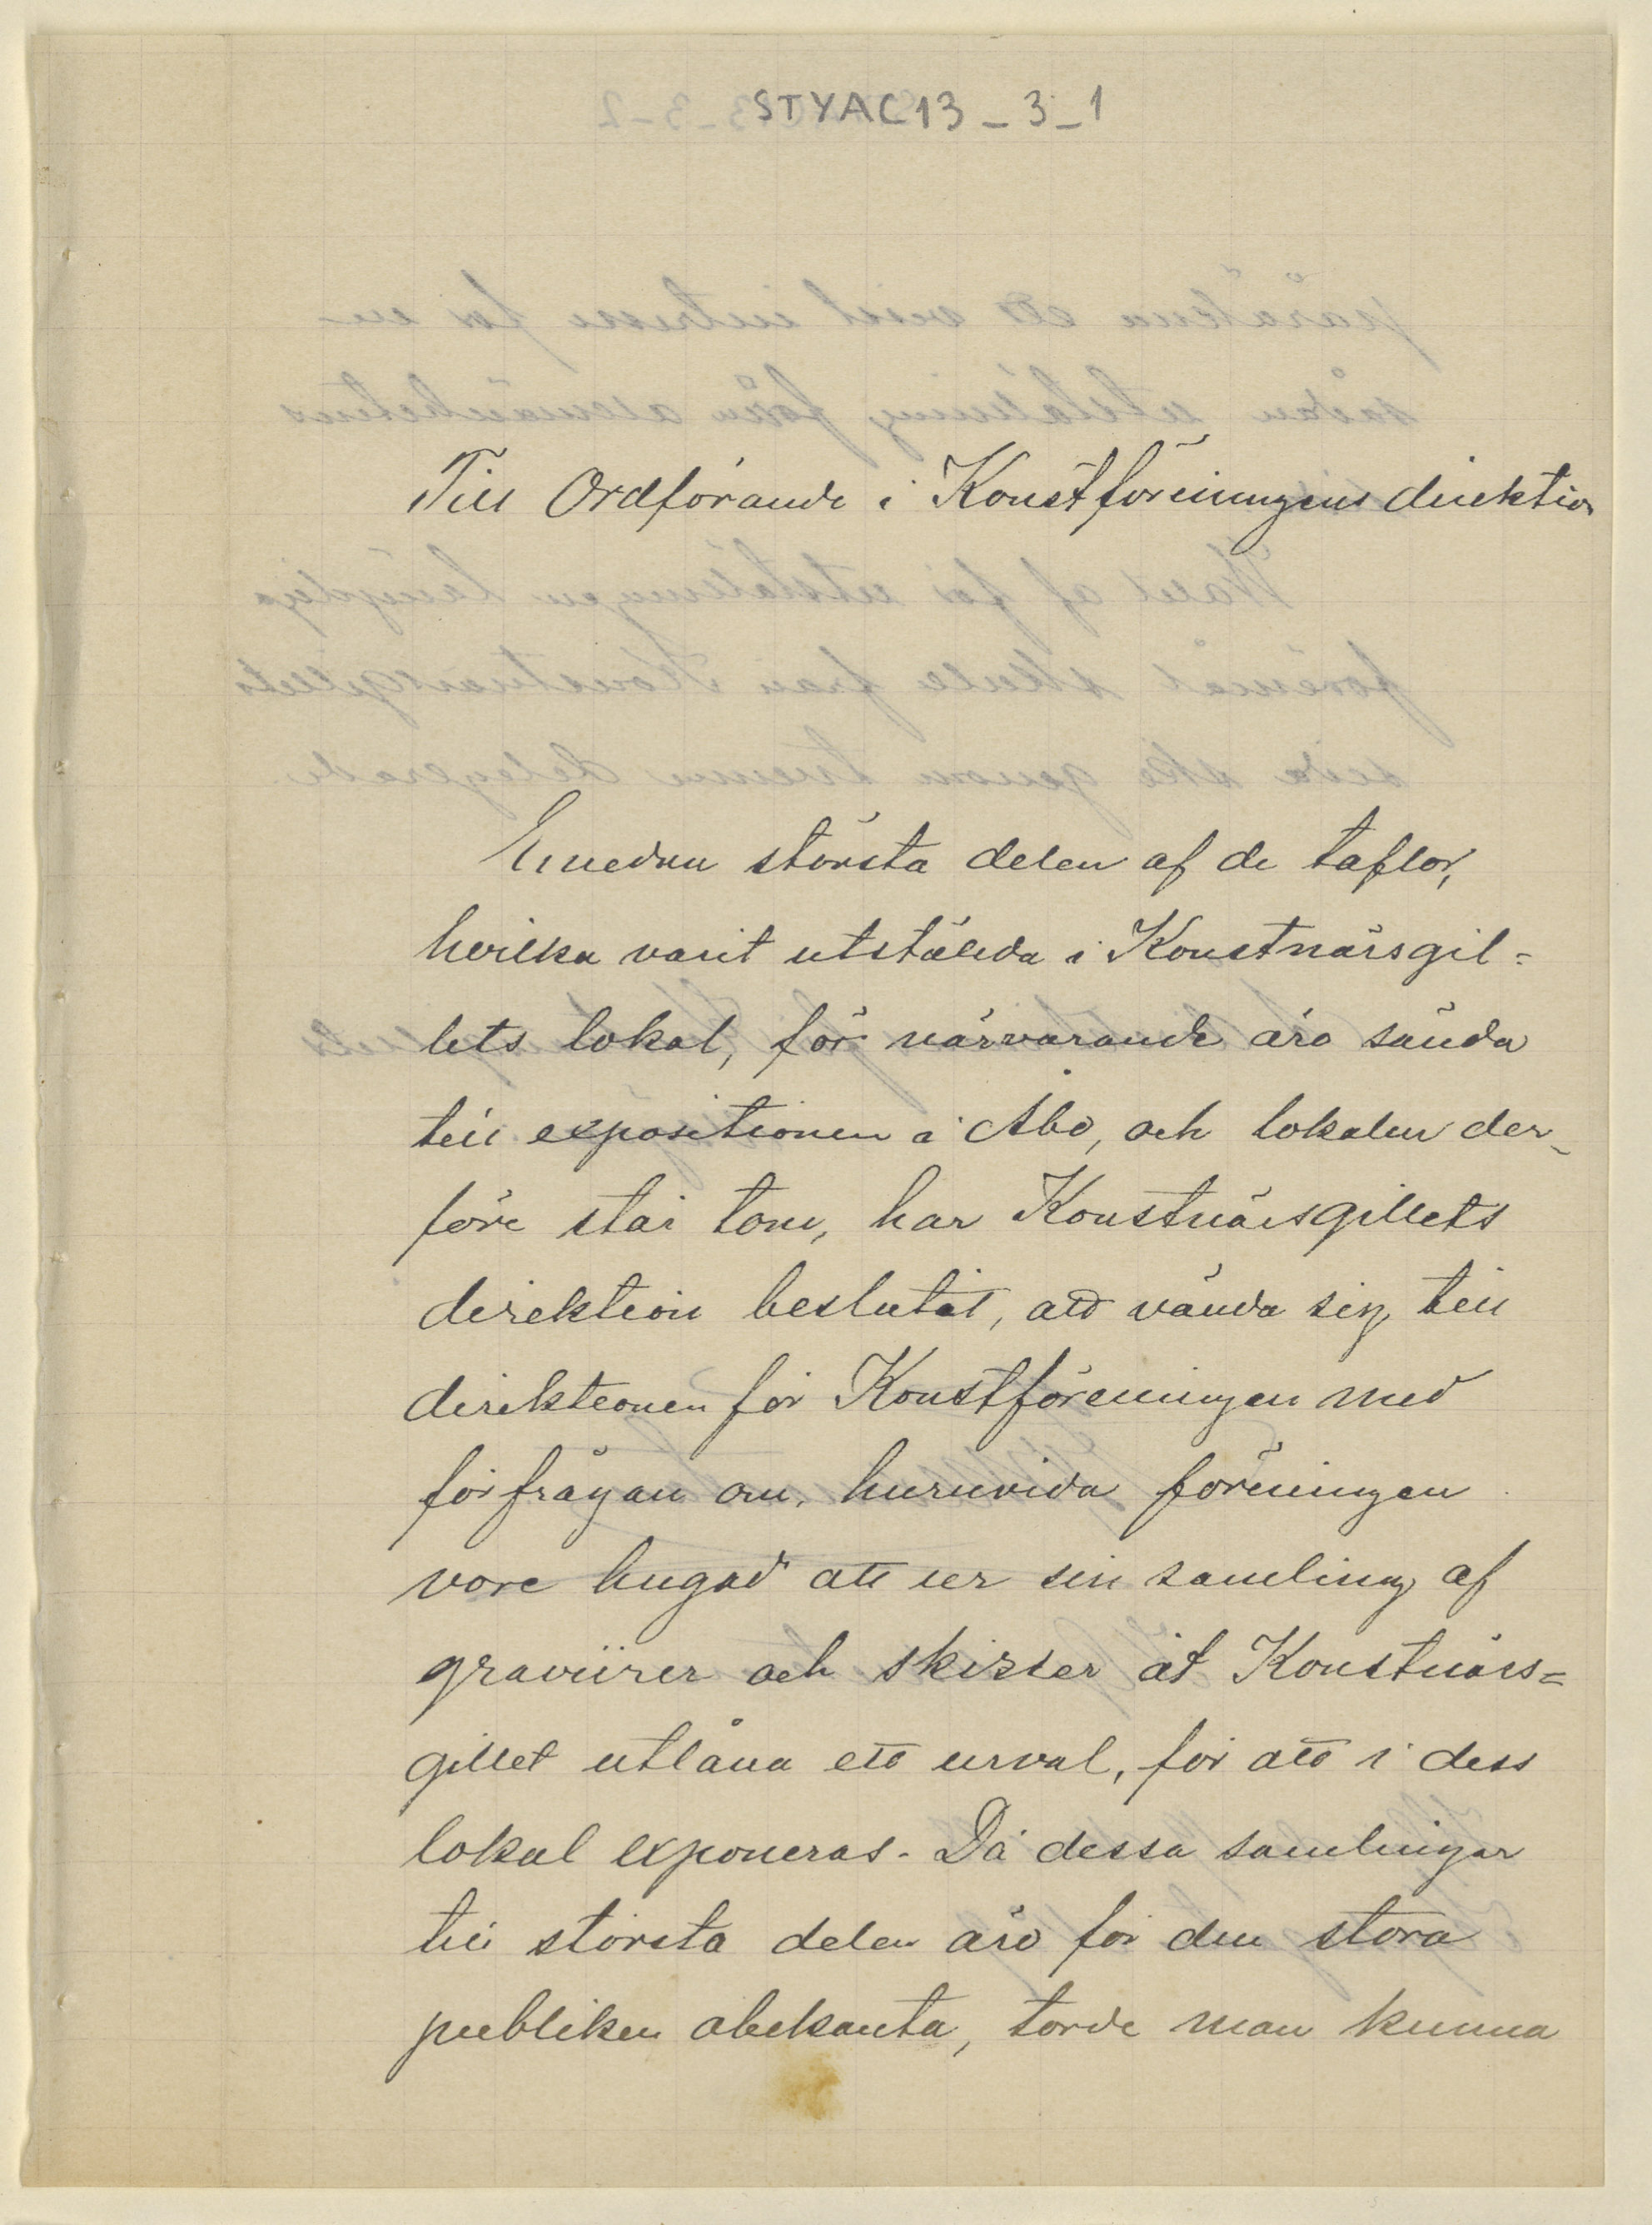 STYAC13_3_1
Till Ordförande i Konstföreningens direktion
Emedan största delen af de taflor,
hvilka varit utstälda i Konstnärsgil=
lets lokal, för närvarande äro sända
till expositionen i Åbo, och lokalen der-
före står tom, har Konstnärsgillets
direktion beslutat, att vända sig till
direktionen för Konstföreningen med
förfrågan om, huruvida föreningen
vore hugad att ur sin samling af
gravürer och skizzer åt Konstnärs=
gillet utlåna ett urval, för att i dess
lokal exponeras. Då dessa samlingar
till största delen äro för den stora
publiken obekanta, torde man kunna